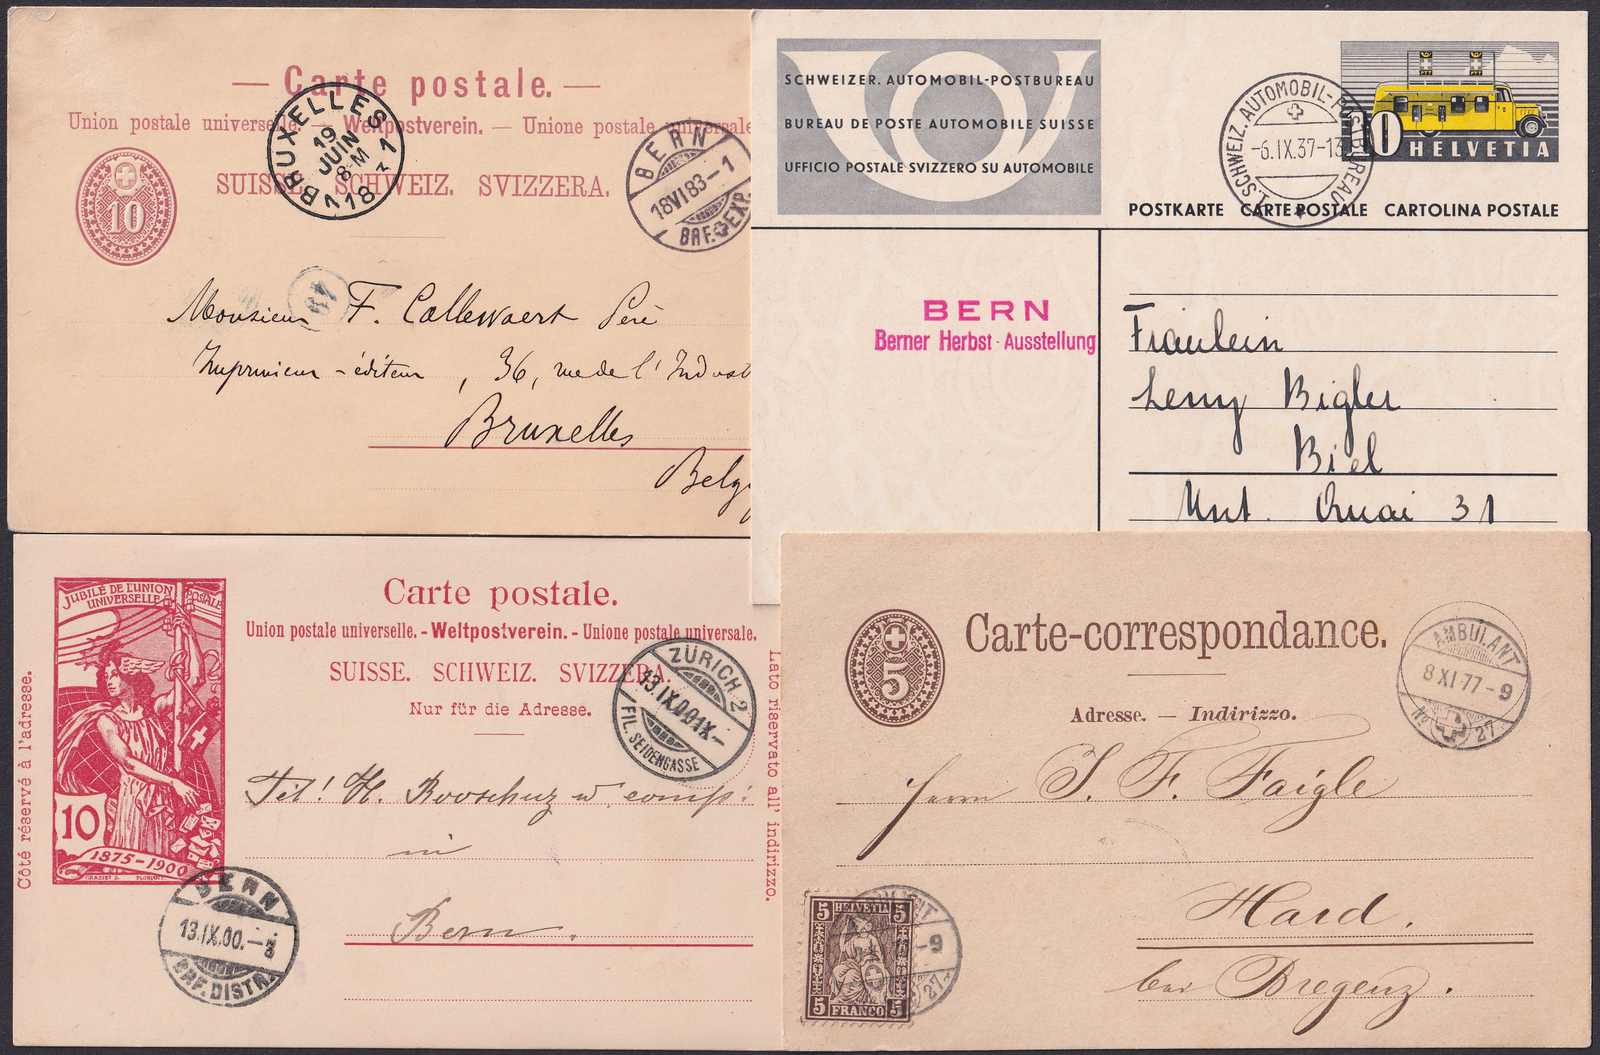 — Carte postale. —
Union postale universelle. — Weltpostverein. — Unione postale universale
SUISSE. SCHWEIZ. SVIZZERA.
10
BRUXELLES
19
JUIN
8-M
1 18 1
BERN
18 VI 83-1
BRF. EXP.
48
Monsieur F. Callewaert Père
Imprimeur-éditeur, 36, rue de l'Indust
Bruxelles
Belg
SCHWEIZER. AUTOMOBIL-POSTBUREAU
BUREAU DE POSTE AUTOMOBILE SUISSE
UFFICIO POSTALE SVIZZERO SU AUTOMOBILE
PTT PTT
10 HELVETIA
1. SCHWEIZ. AUTOMOBIL-POSTBUREAU
-6.IX.37-13
POSTKARTE CARTE POSTALE CARTOLINA POSTALE
BERN
Berner Herbst-Ausstellung
Fräulein
Leny Bigler
Biel
Unt. Quai 31
JUBILÉ DE L'UNION POSTALE
UNIVERSELLE
10
1875-1900
GRASSET D. FLORIAN
Côté réservé à l'adresse.
Carte postale.
Union postale universelle. - Weltpostverein. - Unione postale universale.
SUISSE. SCHWEIZ. SVIZZERA.
Nur für die Adresse.
Lato riservato all' indirizzo.
ZÜRICH 2
13.IX.00.IX-
FIL. SEIDENGASSE
Tit! H. comp:
in
Bern.
BERN
13.IX.00.-
BRF. DISTR.
5
Carte-correspondance.
Adresse. — Indirizzo.
AMBULANT
8 XI 77-9
No 27
Herrn J. F. Faigle
Hard.
bei Bregenz.
5 HELVETIA 5
5 FRANCO 5
-9
27